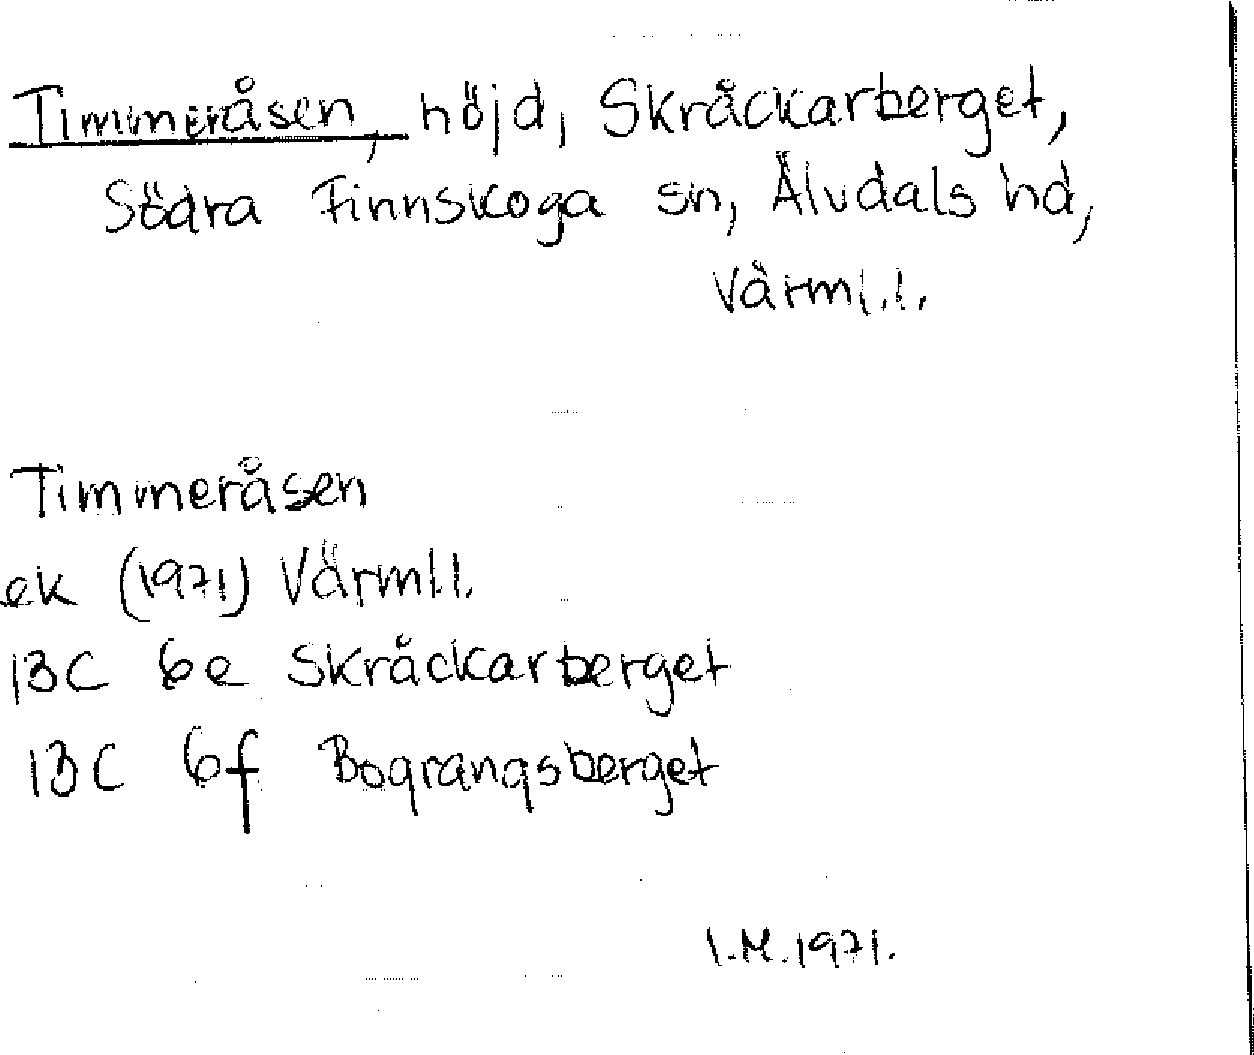 Timmeråsen, höjd, Skråckarberget,
Södra Finnskoga sn, Älvdals hd,
Värml.l.
Timmeråsen
ek (1971) Värml l.
13C 6e Skråckarberget
13C 6f Bograngsberget
I.M. 1971.